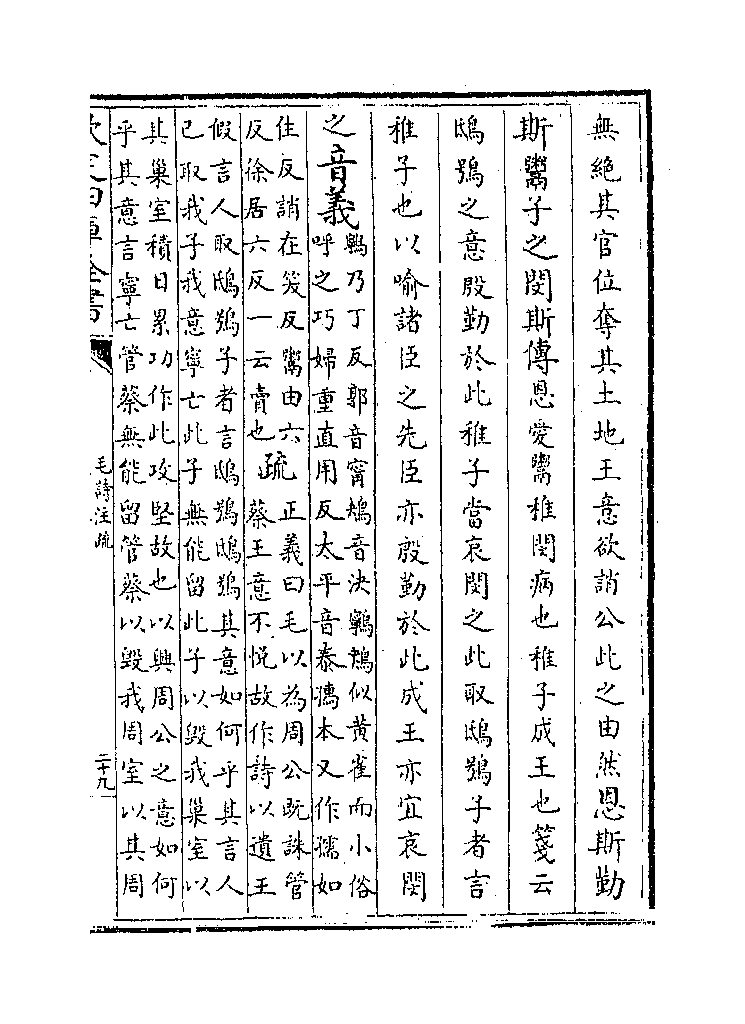 無絶其官位奪其土地王意欲誚公此之由然恩斯勤
斯鬻子之閔斯傳恩愛鬻稚閔病也稚子成王也箋云
鴟鴞之意殷勤於此稚子當哀閔之此取鴟鴞子者言
稚子也以喻諸臣之先臣亦殷勤於此成王亦宜哀閔
之音義
鸋乃丁反郭音甯鴂音决鸋鴂似黄雀而小俗
呼之巧婦重直用反太平音泰鴮本又作孺如
住反誚在笑反鬻由六疏正義曰毛以為周公既誅管
反徐居六反一云賣也蔡王意不悦故作詩以遺王
假言人取鴟鴞子者言鴟鴞鴟鴞其意如何乎其言人
已取我子我意寧亡此子無能留此子以毁我巢室以
其巢室積日累功作此攻堅故也以興周公之意如何
乎其意言寧亡管蔡無能留管蔡以毁我周室以其周
毛詩注疏
二十九